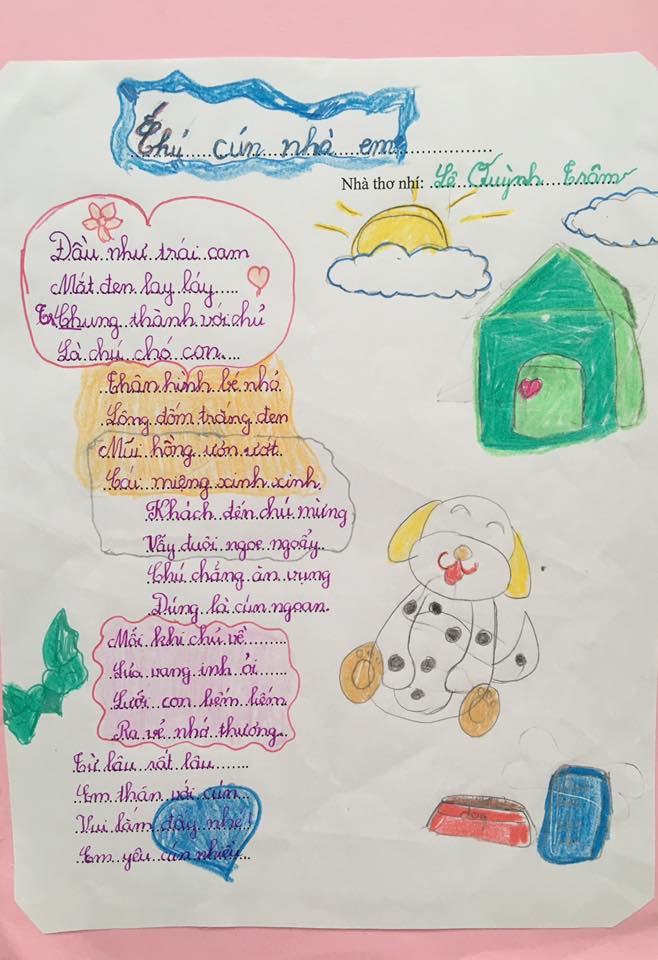 Chú cún nhà em
Nhà thơ nhí: Lê Quỳnh Trâm
Đầu như trái cam
Mắt đen lay láy
Trung thành với chủ
Là chú chó con
Thân hình bé nhỏ
Lông đốm trắng đen
Mũi hồng ươn ướt
Cái miệng xinh xinh
Khách đến chú mừng
Vẫy đuôi ngoe ngoẩy
Chú chẳng ăn vụng
Đúng là cún ngoan
Mỗi khi chú về
Sủa vang inh ỏi
Lưỡi con liếm liếm
Ra vẻ nhớ thương
Từ lâu rất lâu
Em thân với cún
Vui lắm đấy nhé!
Em yêu cún nhiều